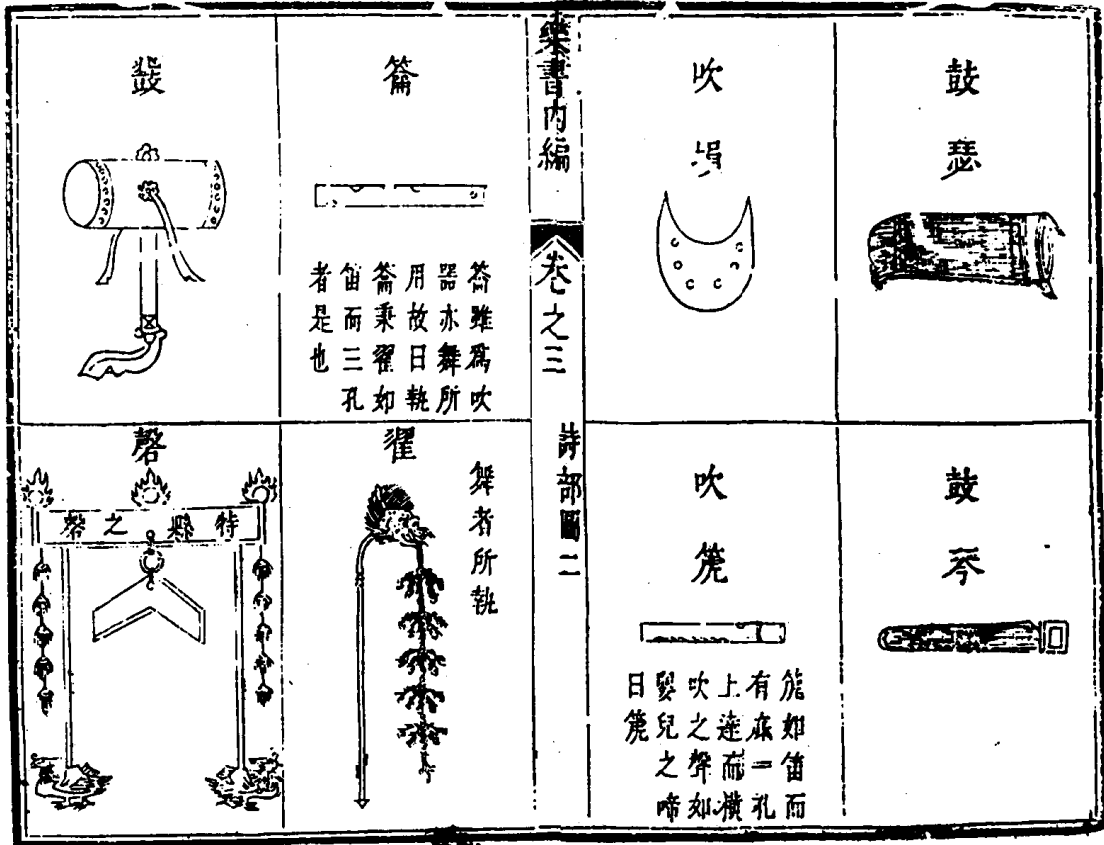 鼓瑟
吹塤
鼓琴
吹篪
篪如笛而
有底一孔
上達而橫
吹之聲如
嬰兒之啼
曰篪
樂書內編
卷之三
詩部圖二
籥
籥雖爲吹
器亦舞所
用故曰執
籥秉翟如
笛而三孔
者是也
鼗
翟
舞者所執
磬
特縣之磬